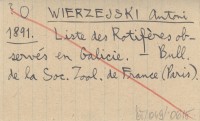 30 WIERZEJSKI Antoni
1891. Liste des Rotifères ob-
servés en Galicie. — Bull.
de la Soc. Zool. de France (Paris).